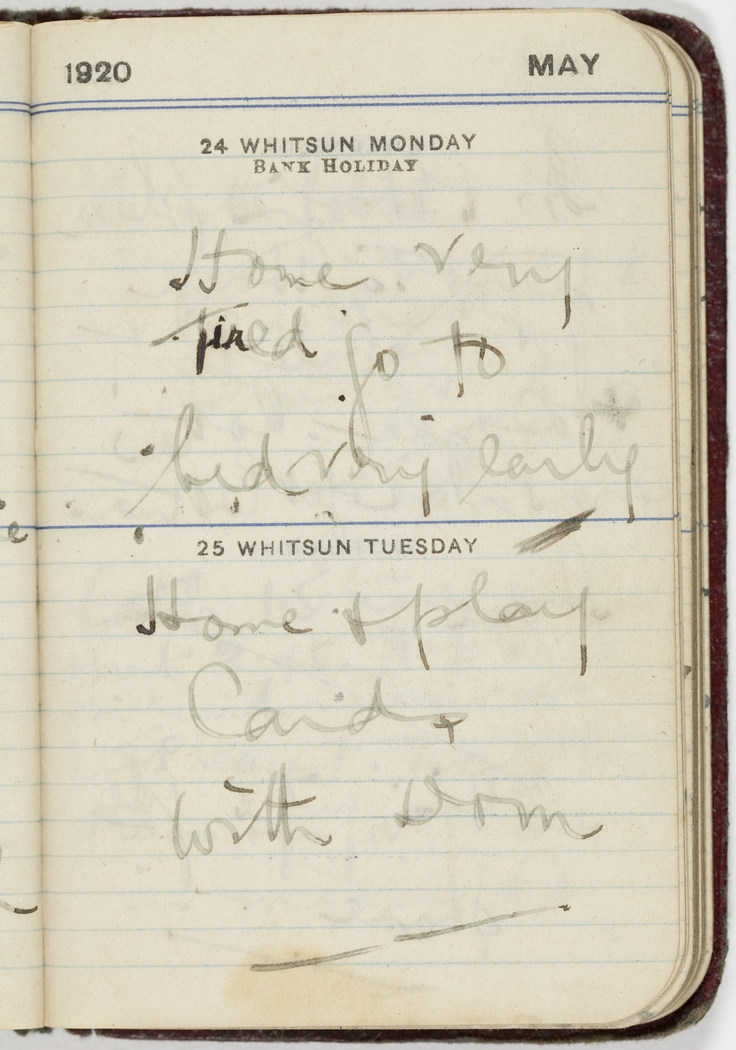 1920 MAY
24 WHITSUN MONDAY
BANK HOLIDAY
Home very
tired go to
bed very early
25 WHITSUN TUESDAY
Home & play
Cards
with Dom